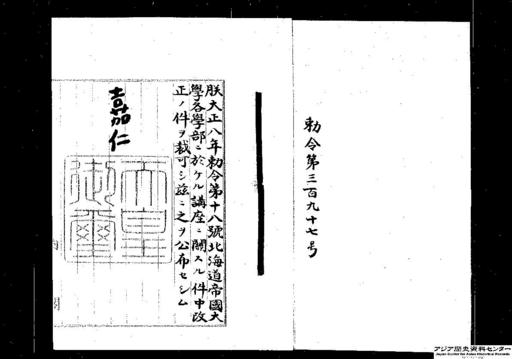 勅令第三百九十七号
朕大正八年勅令第十八號北海道帝國大
學各學部ニ於ケル講座ニ關スル件中改
正ノ件ヲ裁可シ茲ニ之ヲ公布セシム
嘉仁
天皇
御璽
アジア歴史資料センター
Japan Center for Asian Historical Records